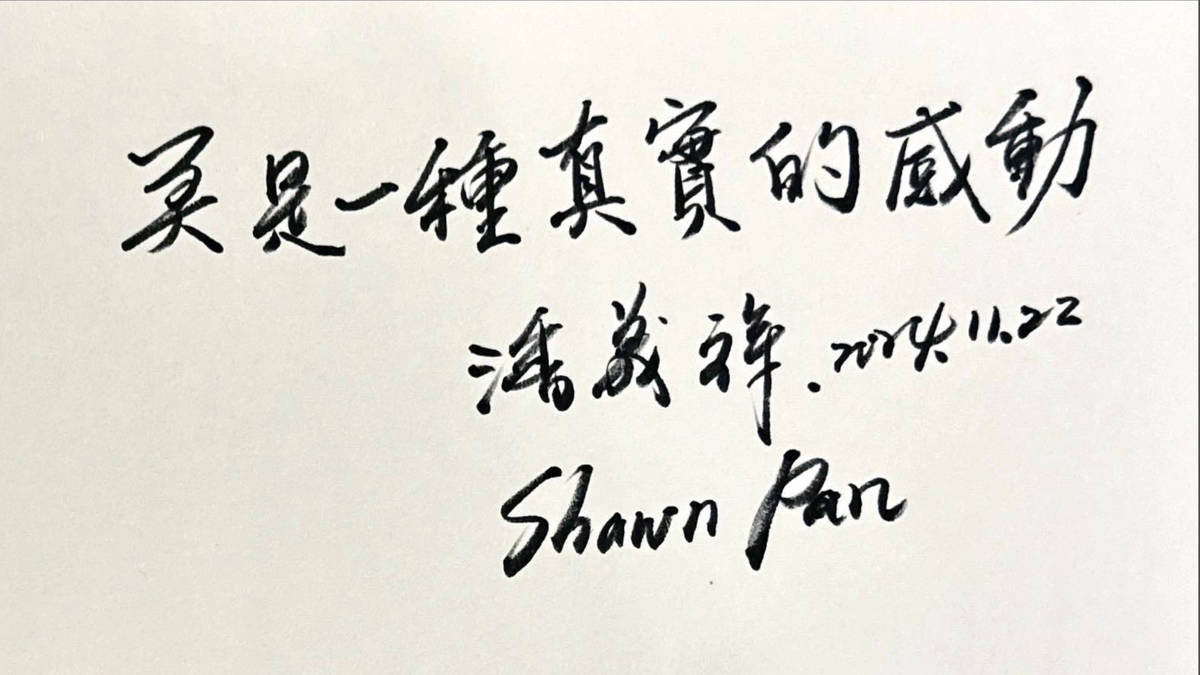 美是一種真實的感動
潘義祥.2024.11.22
Shawn Pan